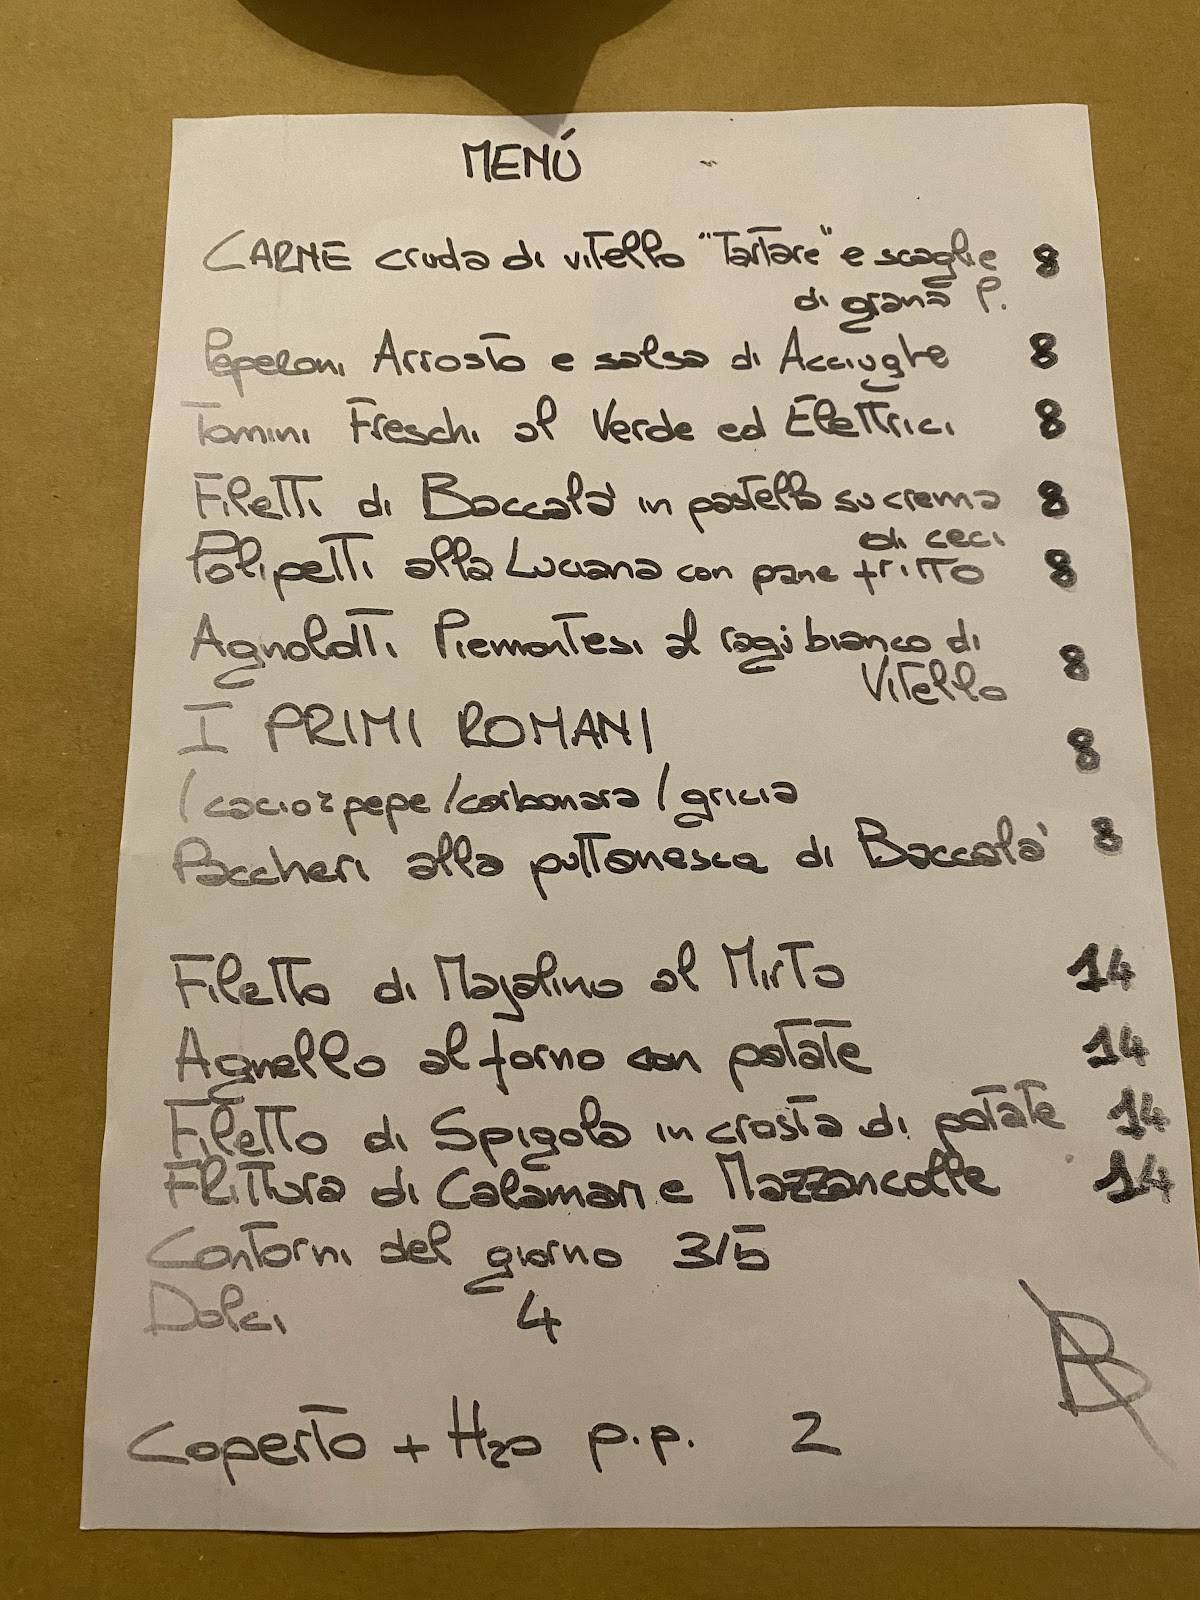 MENÚ
CARNE cruda di vitello "Tartare" e scaglie 8
di grana P.
Peperoni Arrosto e salsa di Acciughe 8
Tomini Freschi al Verde ed Elettrici 8
Filetti di Baccalà in pastella su crema 8
di ceci
Polipetti alla Luciana con pane fritto 8
Agnolotti Piemontesi al ragù bianco di 8
Vitello
I PRIMI ROMANI 8
/cacio e pepe/carbonara/gricia
Paccheri alla puttonesca di Baccalà 8
Filetto di Maialino al Mirto 14
Agnello al forno con patate 14
Filetto di Spigola in crosta di patate 14
Frittura di Calamari e Mazzancolle 14
Contorni del giorno 3/5
Dolci 4
B
Coperto + H2O p.p. 2